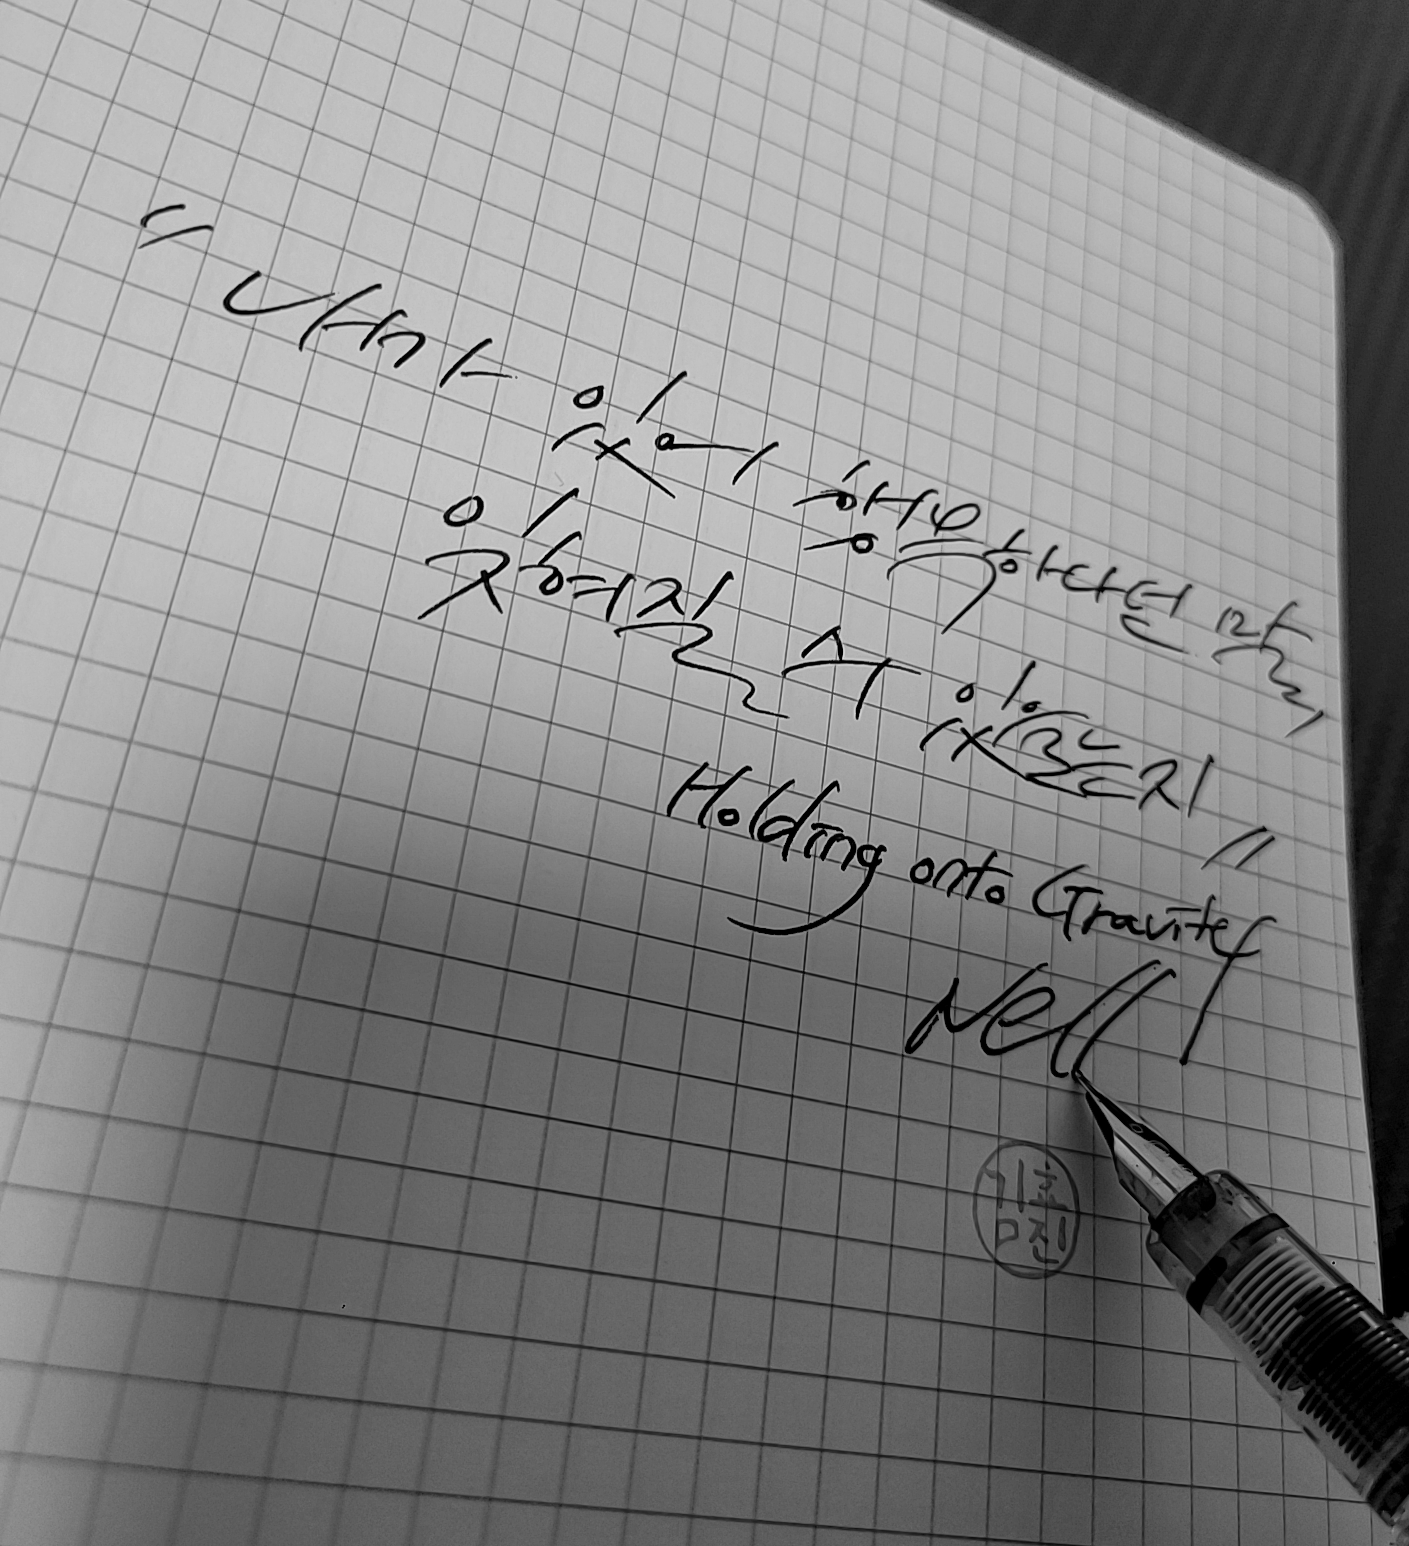 "내가 있어 행복하다던 말,
잊혀질 수 있을는지"
Holding onto Gravity
Nell